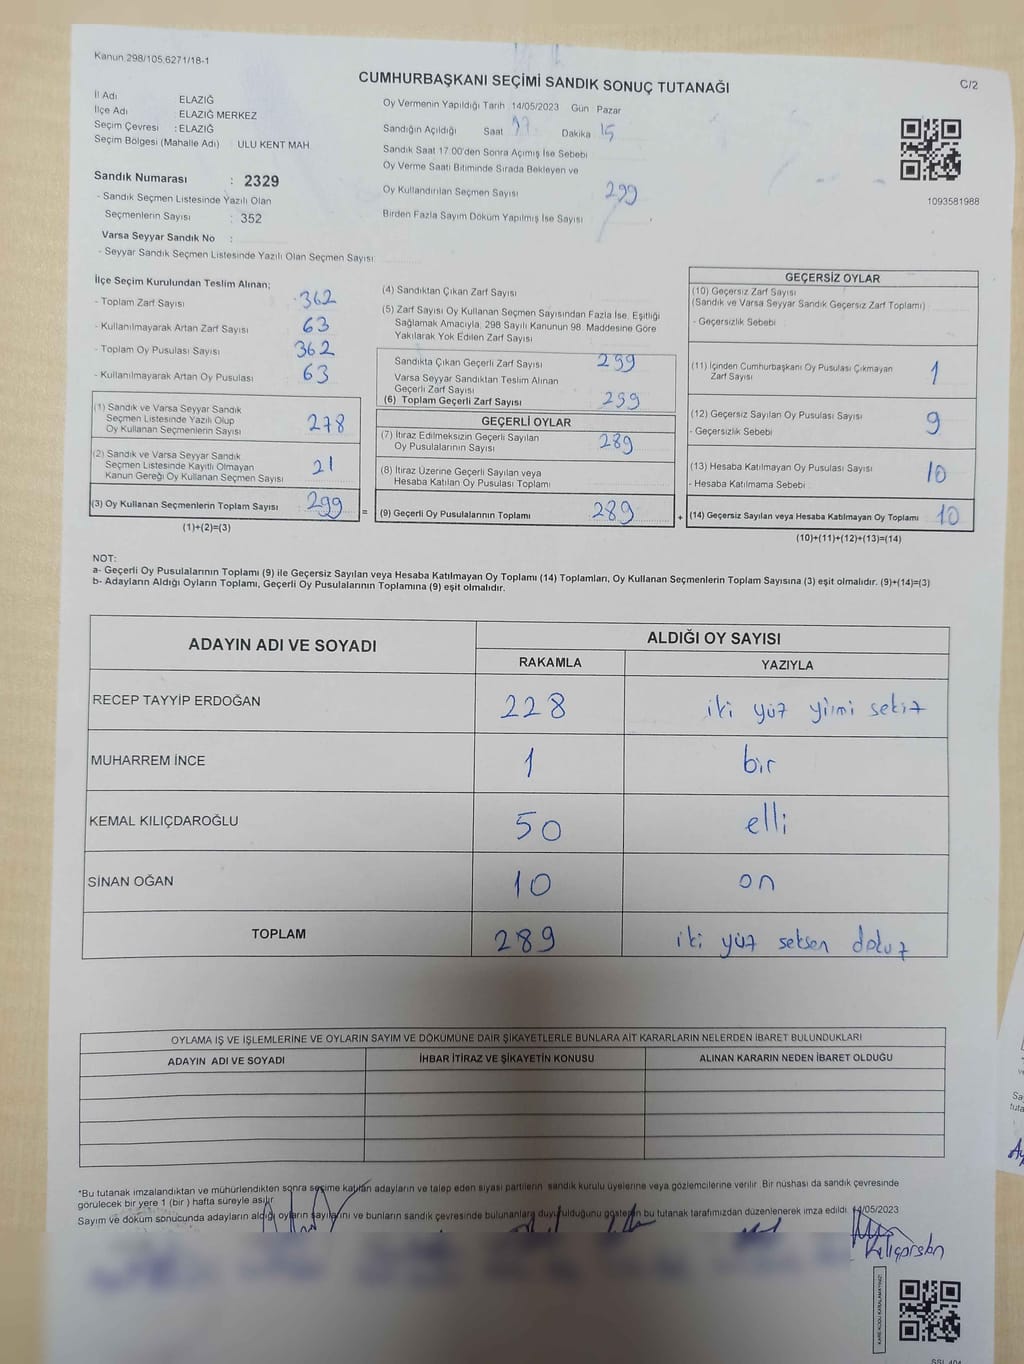 Kanun 298/105.6271/18-1
CUMHURBAŞKANI SEÇİMİ SANDIK SONUÇ TUTANAĞI
C/2
İl Adı ELAZIĞ
İlçe Adı : ELAZIĞ MERKEZ
Seçim Çevresi : ELAZIĞ
Seçim Bölgesi (Mahalle Adı) : ULU KENT MAH
Sandık Numarası : 2329
- Sandık Seçmen Listesinde Yazılı Olan
Seçmenlerin Sayısı : 352
Varsa Seyyar Sandık No :
- Seyyar Sandık Seçmen Listesinde Yazılı Olan Seçmen Sayısı:
Oy Vermenin Yapıldığı Tarih 14/05/2023 Gün Pazar
Sandığın Açıldığı Saat 17 Dakika 15
Sandık Saat 17.00'den Sonra Açımış İse Sebebi
Oy Verme Saati Bitiminde Sırada Bekleyen ve
Oy Kullandırılan Seçmen Sayısı 299
Birden Fazla Sayım Döküm Yapılmış İse Sayısı
1093581988
İlçe Seçim Kurulundan Teslim Alınan;
- Toplam Zarf Sayısı 362
- Kullanılmayarak Artan Zarf Sayısı 63
- Toplam Oy Pusulası Sayısı 362
- Kullanılmayarak Artan Oy Pusulası 63
(1) Sandık ve Varsa Seyyar Sandık
Seçmen Listesinde Yazılı Olup
Oy Kullanan Seçmenlerin Sayısı 278
(2) Sandık ve Varsa Seyyar Sandık
Seçmen Listesinde Kayıtlı Olmayan
Kanun Gereği Oy Kullanan Seçmen Sayısı 21
(3) Oy Kullanan Seçmenlerin Toplam Sayısı 299
(1)+(2)=(3)
(4) Sandıktan Çıkan Zarf Sayısı
(5) Zarf Sayısı Oy Kullanan Seçmen Sayısından Fazla İse, Eşitliği
Sağlamak Amacıyla, 298 Sayılı Kanunun 98. Maddesine Göre
Yakılarak Yok Edilen Zarf Sayısı
Sandıkta Çıkan Geçerli Zarf Sayısı 299
Varsa Seyyar Sandıktan Teslim Alınan
Geçerli Zarf Sayısı
(6) Toplam Geçerli Zarf Sayısı 299
GEÇERLİ OYLAR
(7) İtiraz Edilmeksizin Geçerli Sayılan
Oy Pusulalarının Sayısı 289
(8) İtiraz Üzerine Geçerli Sayılan veya
Hesaba Katılan Oy Pusulası Toplamı
= (9) Geçerli Oy Pusulalarının Toplamı 289
GEÇERSİZ OYLAR
(10) Geçersiz Zarf Sayısı
(Sandık ve Varsa Seyyar Sandık Geçersiz Zarf Toplamı)
- Geçersizlik Sebebi
(11) İçinden Cumhurbaşkanı Oy Pusulası Çıkmayan
Zarf Sayısı 1
(12) Geçersiz Sayılan Oy Pusulası Sayısı 9
- Geçersizlik Sebebi
(13) Hesaba Katılmayan Oy Pusulası Sayısı 10
- Hesaba Katılmama Sebebi
+ (14) Geçersiz Sayılan veya Hesaba Katılmayan Oy Toplamı 10
(10)+(11)+(12)+(13)=(14)
NOT:
a- Geçerli Oy Pusulalarının Toplamı (9) ile Geçersiz Sayılan veya Hesaba Katılmayan Oy Toplamı (14) Toplamları, Oy Kullanan Seçmenlerin Toplam Sayısına (3) eşit olmalıdır. (9)+(14)=(3)
b- Adayların Aldığı Oyların Toplamı, Geçerli Oy Pusulalarının Toplamına (9) eşit olmalıdır.
ADAYIN ADI VE SOYADI ALDIĞI OY SAYISI
RAKAMLA YAZIYLA
RECEP TAYYİP ERDOĞAN 228 iki yüz yirmi sekiz
MUHARREM İNCE 1 bir
KEMAL KILIÇDAROĞLU 50 elli
SİNAN OĞAN 10 on
TOPLAM 289 iki yüz seksen dokuz
OYLAMA İŞ VE İŞLEMLERİNE VE OYLARIN SAYIM VE DÖKÜMÜNE DAİR ŞİKAYETLERLE BUNLARA AİT KARARLARIN NELERDEN İBARET BULUNDUKLARI
ADAYIN ADI VE SOYADI İHBAR İTİRAZ VE ŞİKAYETİN KONUSU ALINAN KARARIN NEDEN İBARET OLDUĞU
*Bu tutanak imzalandıktan ve mühürlendikten sonra seçime katılan adayların ve talep eden siyasi partilerin sandık kurulu üyelerine veya gözlemcilerine verilir. Bir nüshası da sandık çevresinde
görülecek bir yere 1 (bir) hafta süreyle asılır
Sayım ve döküm sonucunda adayların aldığı oyların sayılarını ve bunların sandık çevresinde bulunanlara duyurulduğunu gösteren bu tutanak tarafımızdan düzenlenerek imza edildi. 14/05/2023